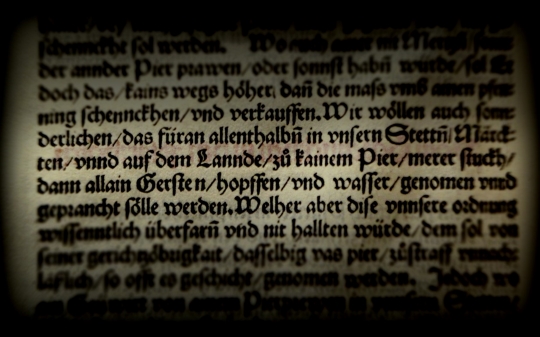 schennckhe sol werden.
der annder Pier prawen/oder sonnst habñ wurde/sol Er
doch das/kains wegs höher dañ die maſs vmb ainen pfen-
ning ſchennckhen/vnd verkauffen. Wir wöllen auch ſonn-
derlichen/das füran allenthalbñ in vnſern Stettñ/Märck-
ten/vnnd auf dem Lannde/zů kainem Pier/merer ſtuckh/
dann allain Gerſten/hopffen/vnd waſſer/genomen vnnd
geprancht ſölle werden. Welher aber diſe vnnſere ordnung
wiſſenntlich überfarñ vnd nit hallten würde/dem ſol von
ſeiner gerichtzöbrigkait/daſſelbig vas pier/zůſtraff vnnach-
läſſlich/ſo offt es geſchicht/genomen werden. Jedoch wo